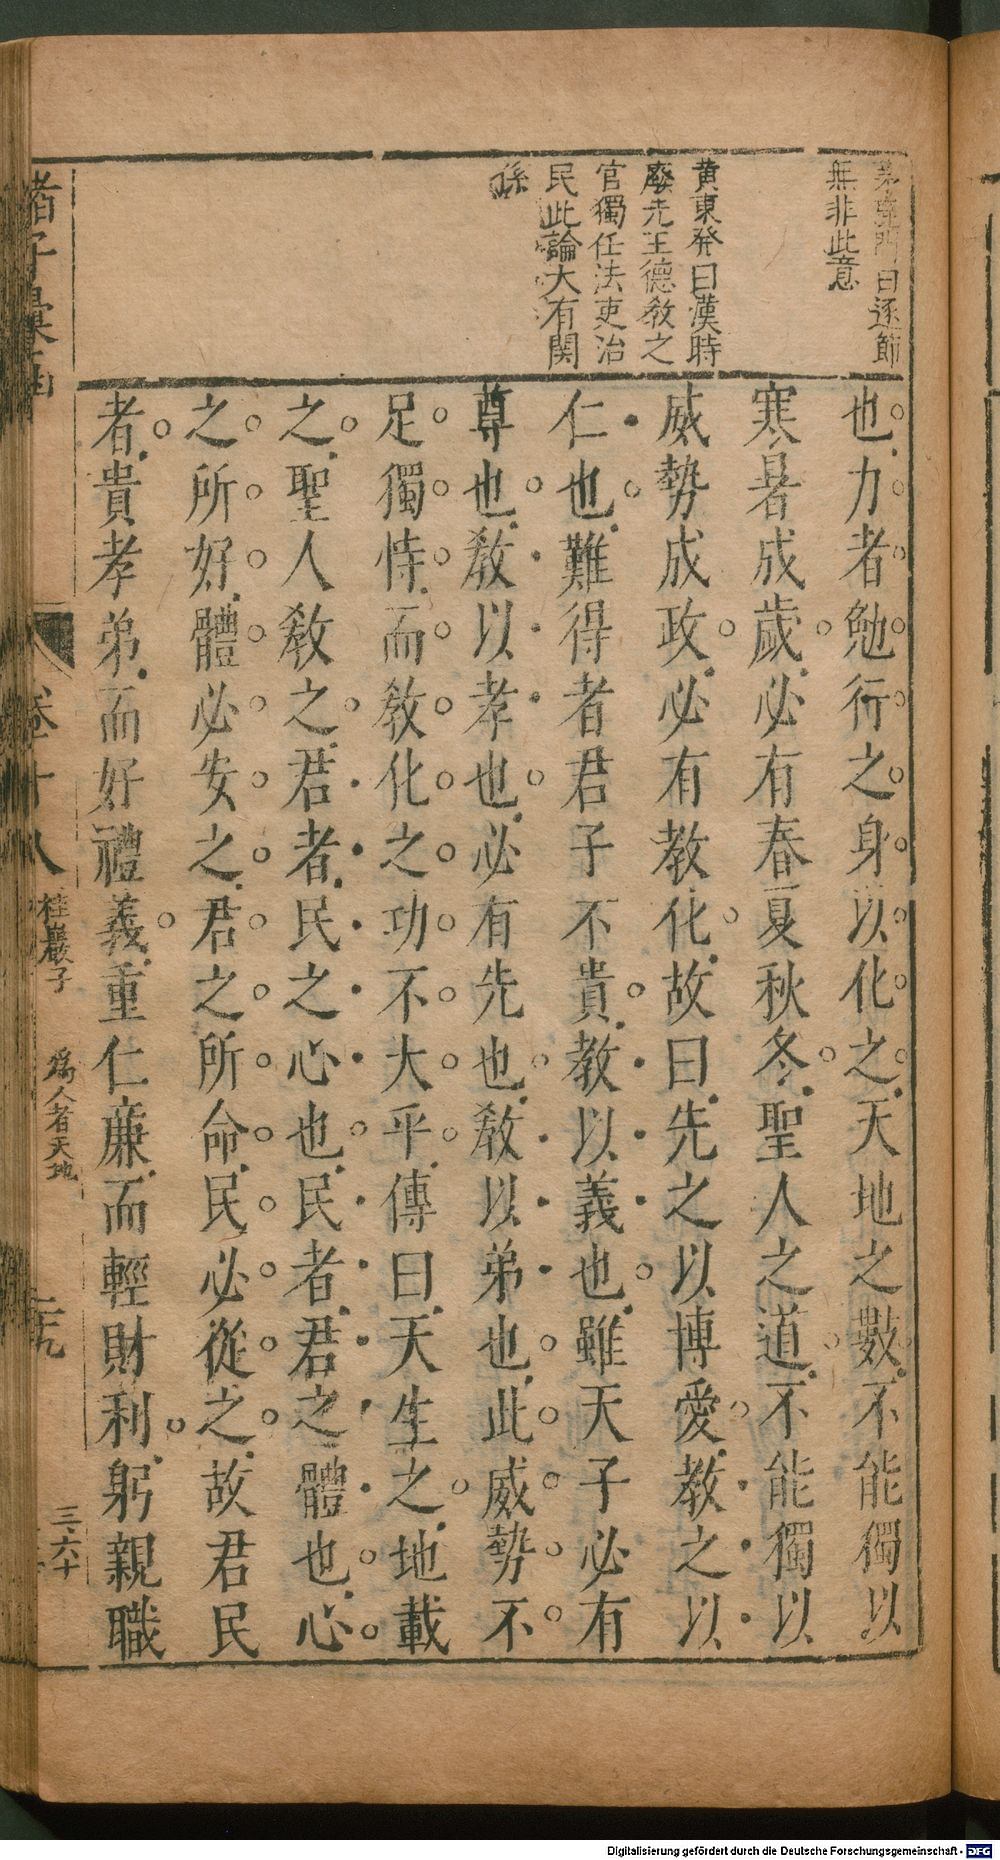 茅鹿門曰逐節
無非此意
黄東發曰漢時
廢先王德教之
官獨任法吏治
民此論大有関
係
也力者勉行之身以化之天地之數不能獨以
寒暑成歲必有春夏秋冬聖人之道不能獨以
威勢成政必有教化故曰先之以博愛教之以
仁也難得者君子不貴教以義也雖天子必有
尊也教以孝也必有先也教以弟也此威勢不
足獨恃而教化之功不大乎傳曰天生之地載
之聖人教之君者民之心也民者君之體也心
之所好體必安之君之所命民必從之故君民
者貴孝弟而好禮義重仁廉而輕財利躬親職
諸子彙函
卷十八
桂巖子
為人者天地
二九
三六十
Digitalisierung gefördert durch die Deutsche Forschungsgemeinschaft - DFG